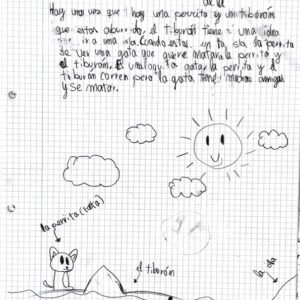 de la
Hay una vez que hay una perrita y un tiburón
que estar aburrido. el tiburón tiene una idea
ir a una isla. Cuando estar en la isla la perrita
se ver una gata que quiere matar a la perrita y
el tiburón. la gata y la perrita y el
tiburón corren pero la gata tiene muchos amigos
y se matar.
la perrita (gata)
el tiburón
la isla